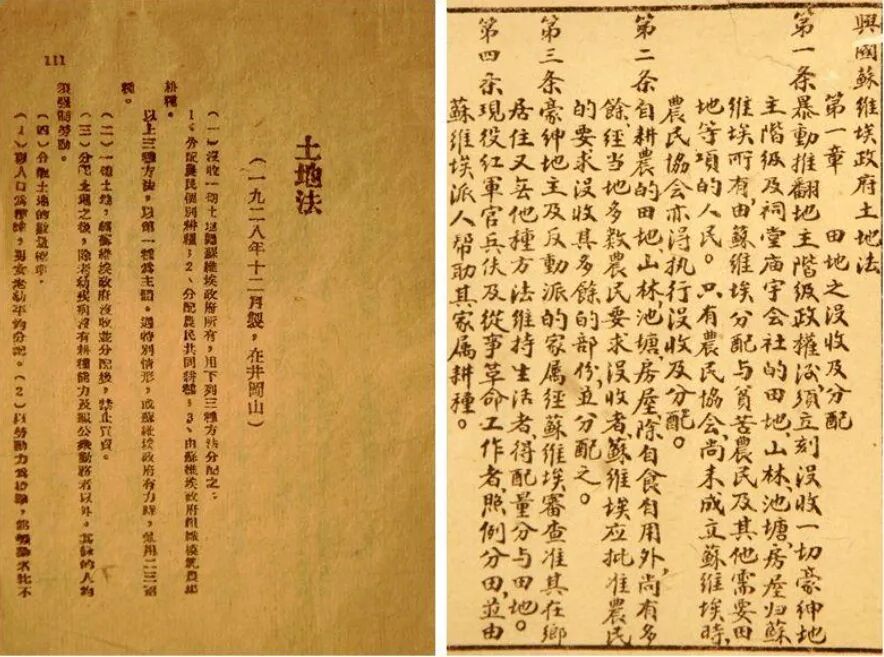 111
土地法
(一九二八年十二月製,在井岡山)
(一)沒收一切土地歸蘇維埃政府所有,用下列三種方法分配之:
1、分配農民個別耕種;2、分配農民共同耕種;3、由蘇維埃政府組織模範農場
耕種。
以上三種方法,以第一種爲主體。遇特別情形,或蘇維埃政府有力時,兼用二三兩
種。
(二)一切土地,經蘇維埃政府沒收並分配後,禁止買賣。
(三)分配土地之後,除老幼疾病沒有耕種能力及服公衆勤務者以外,其餘的人均
須强制勞動。
(四)分配土地的數量標準:
(1)以人口爲標準,男女老幼平均分配。(2)以勞動力爲標準,能勞動者比不
興國蘇維埃政府土地法
第一章 田地之没收及分配
第一条暴動推翻地主階級政權後,須立刻没收一切豪紳地
主階級及祠堂庙宇会社的田地,山林,池塘,房屋归蘇
維埃所有,由蘇維埃分配与貧苦農民及其他需要田
地等項的人民。只有農民協會,尚未成立蘇維埃時,
農民協会亦得执行没收及分配。
第二条自耕農的田地,山林,池塘,房屋,除自食自用外,尚有多
餘,經当地多数農民要求没收者,蘇維埃应批准農民
的要求没收其多餘的部份,並分配之。
第三条豪紳地主及反動派的家属,經蘇維埃審查准其在鄉
居住,又無他種方法維持生活者,得配量分与田地。
第四条現役红軍官兵伕及從事革命工作者,照例分田,並由
蘇維埃派人帮助其家属耕種。